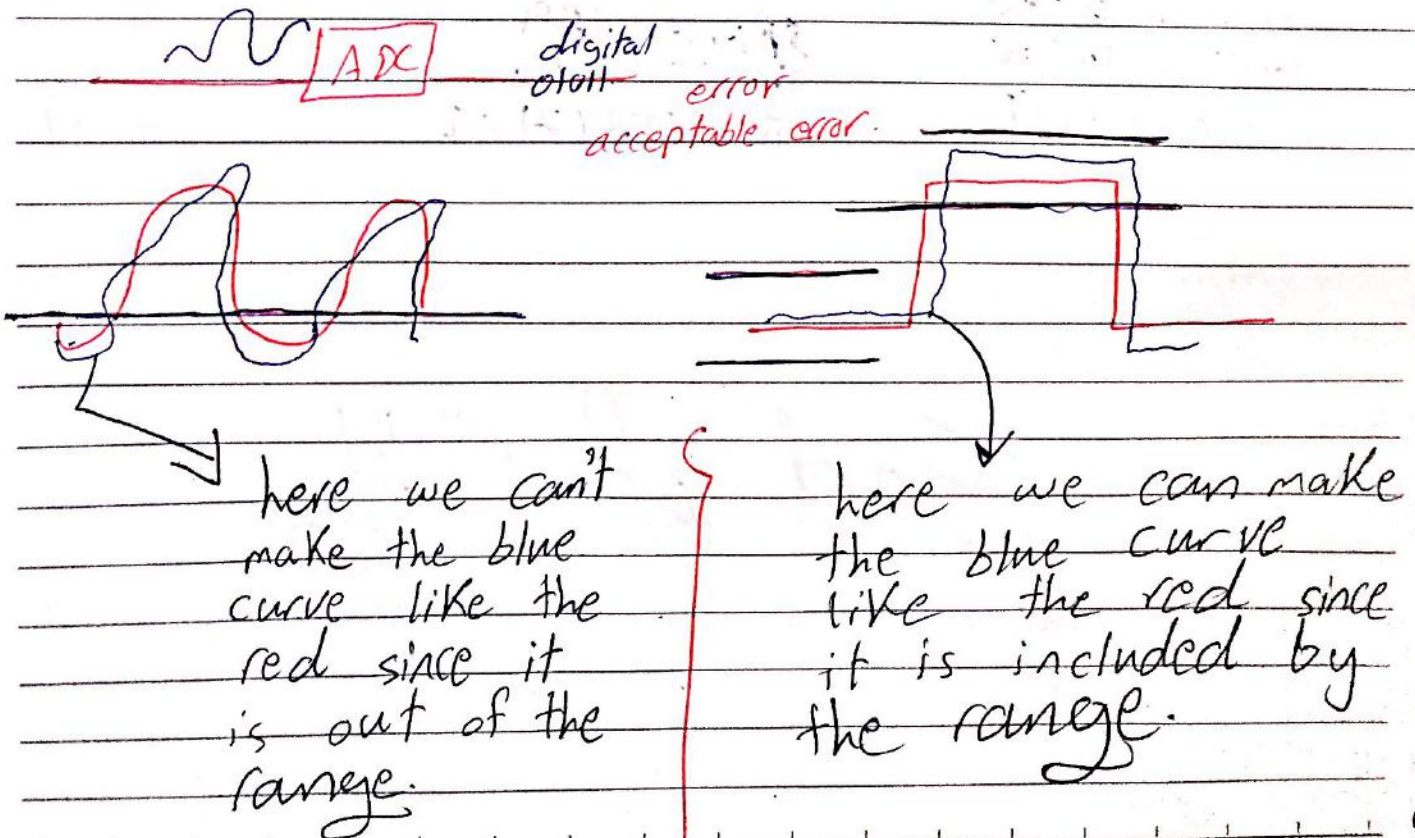 ADC
digital
01011
error
acceptable error.
here we can't
make the blue
curve like the
red since it
is out of the
range.
here we can make
the blue curve
like the red since
it is included by
the range.